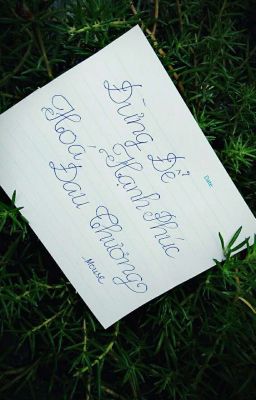 Date:
Đừng Để
Hạnh Phúc
Hoá
Đau Thương
Mouse